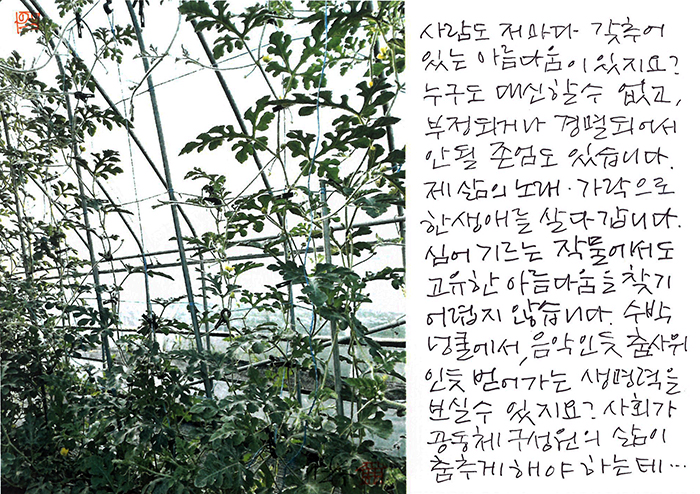 사람도 저마다 갖추어
있는 아름다움이 있지요?
누구도 대신할 수 없고,
부정되거나 경멸되어서
안될 존엄도 있습니다.
제 삶의 노래·가락으로
한생애를 살다 갑니다.
심어 기르는 작물에서도
고유한 아름다움을 찾기
어렵지 않습니다. 수박
넝쿨에서, 음악인듯 춤사위
인듯 벋어가는 생명력을
보실 수 있지요? 사회가
공동체 구성원의 삶이
춤추게 해야 하는데…